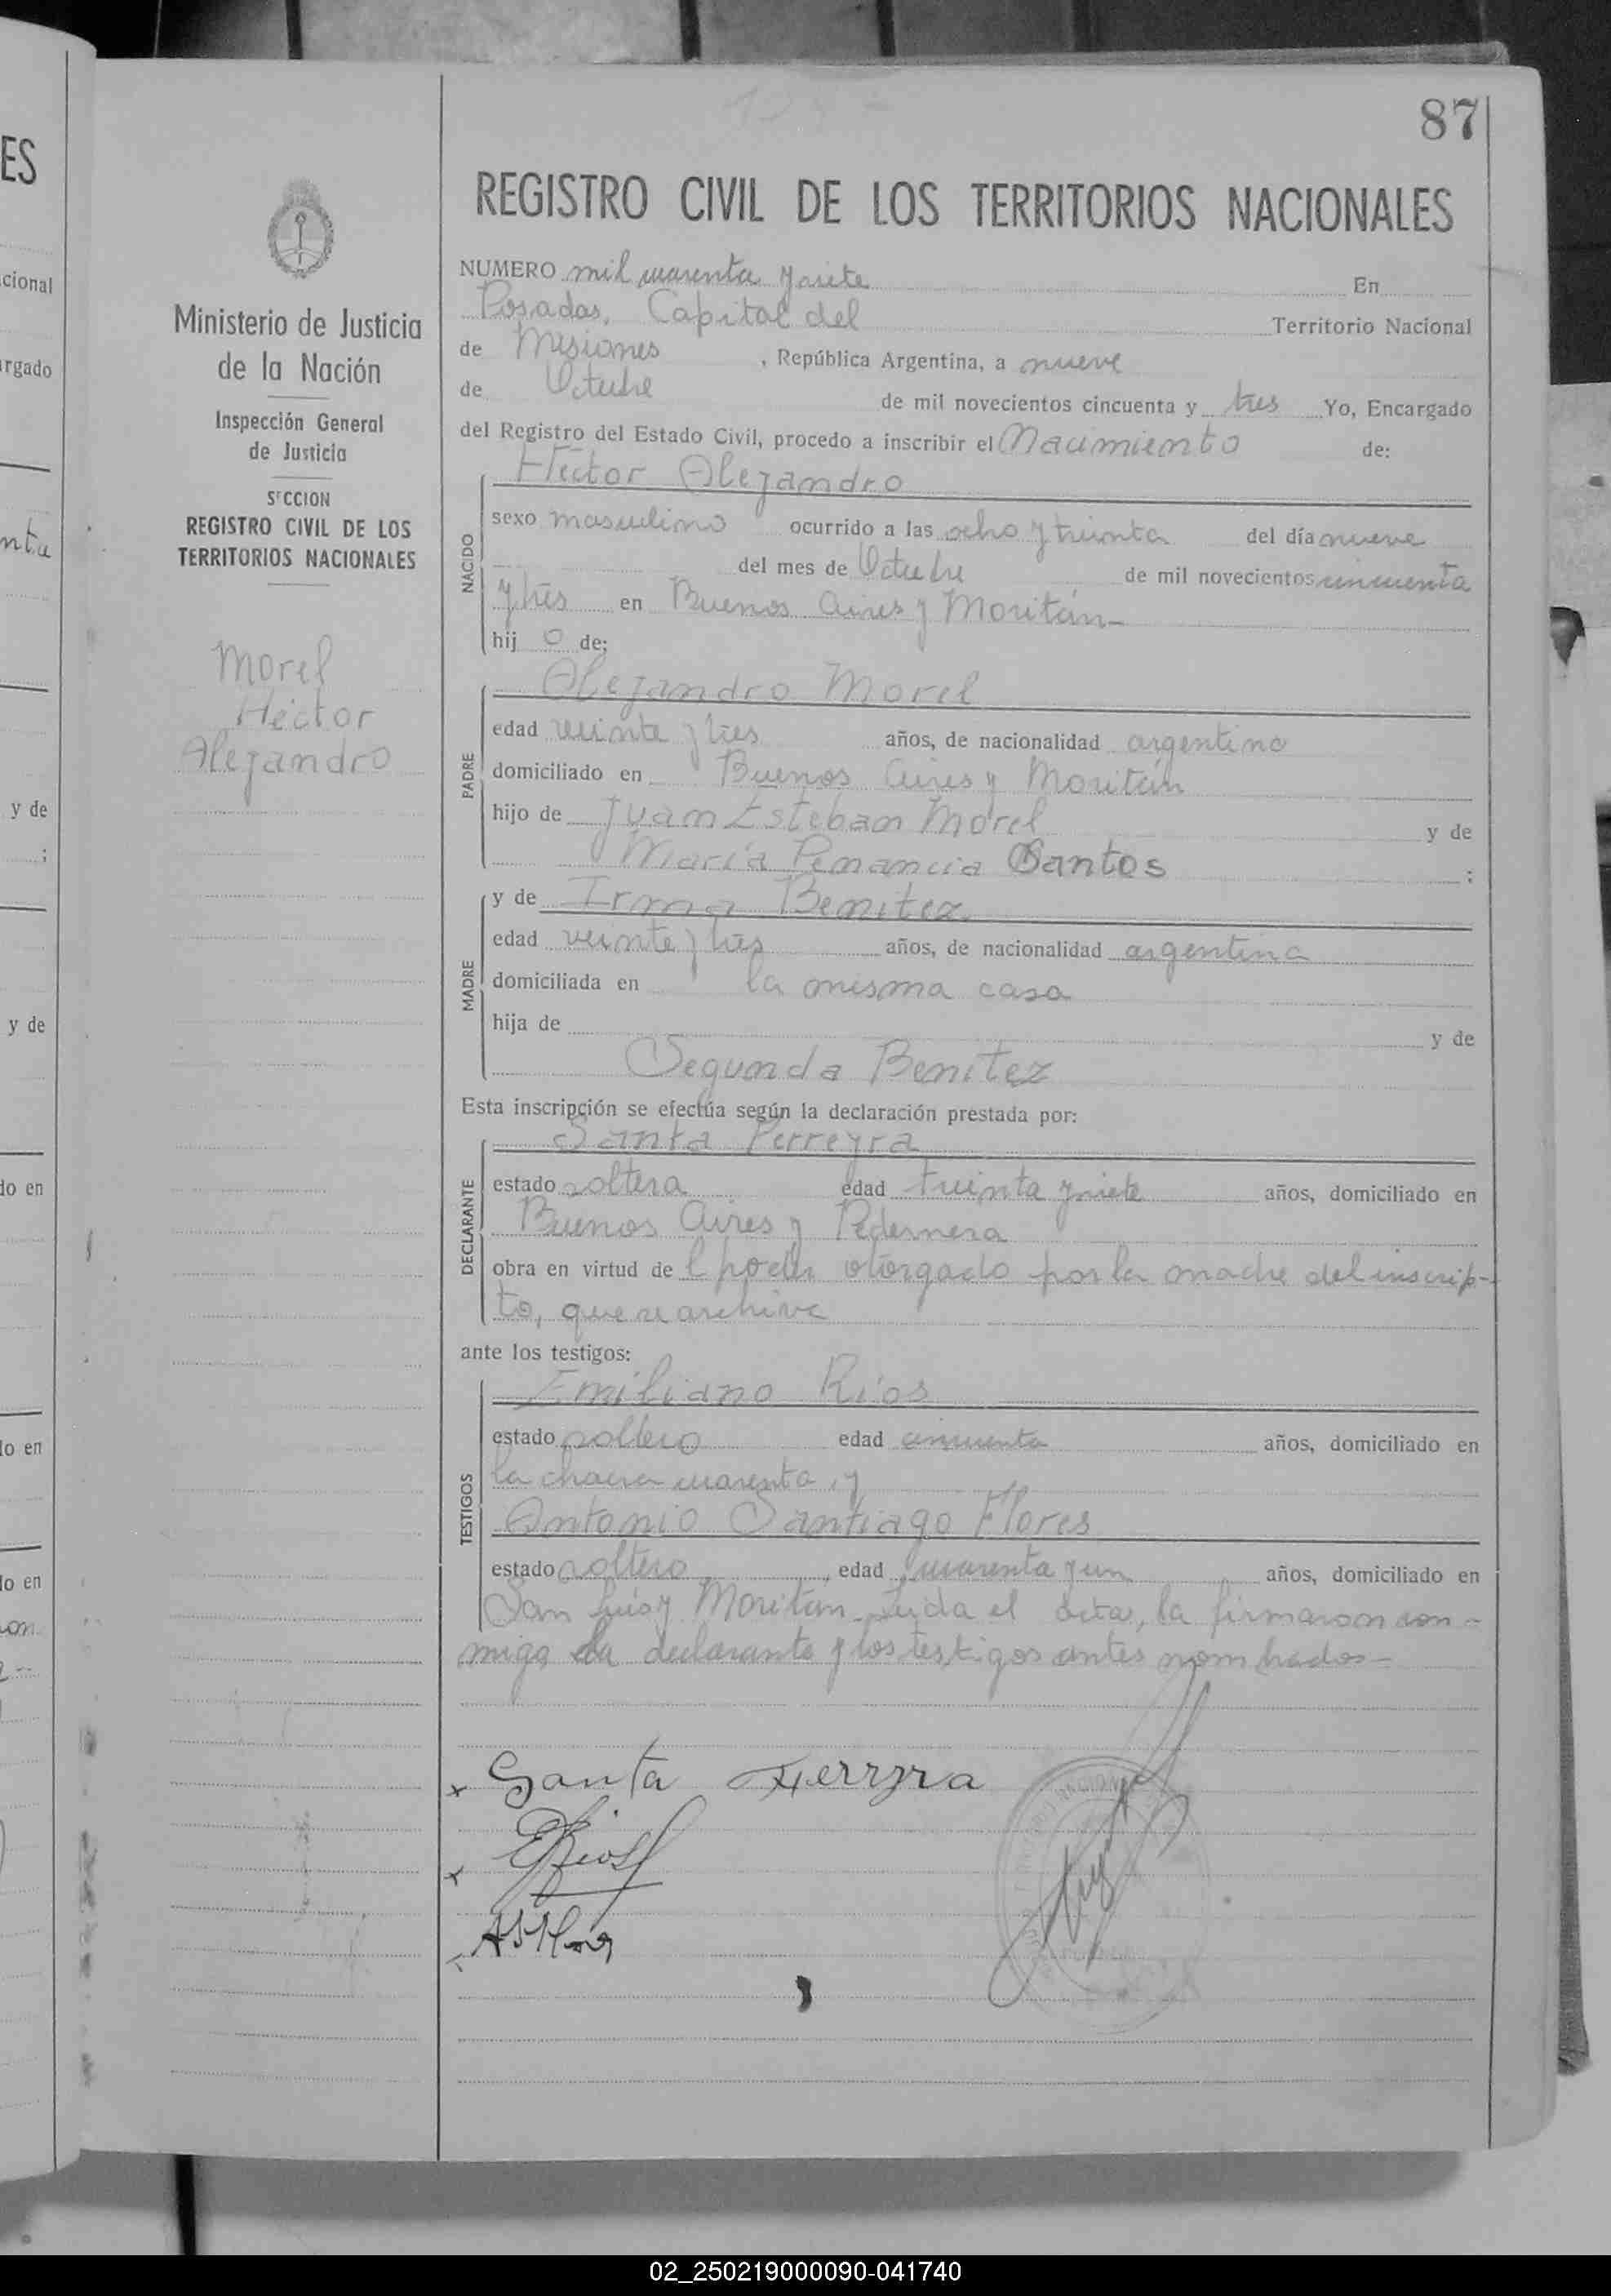 87
ES
REGISTRO CIVIL DE LOS TERRITORIOS NACIONALES
cional
rgado
nta
y de
;
y de
do en
lo en
lo en
Ministerio de Justicia
de la Nación
Inspección General
de Justicia
SECCION
REGISTRO CIVIL DE LOS
TERRITORIOS NACIONALES
Morel
Héctor
Alejandro
NUMERO mil cuarenta y siete En
Posadas, Capital del Territorio Nacional
de Misiones , República Argentina, a nueve
de Octubre de mil novecientos cincuenta y tres Yo, Encargado
del Registro del Estado Civil, procedo a inscribir el Nacimiento de:
NACIDO
Héctor Alejandro
sexo masculino ocurrido a las ocho y treinta del día nueve
del mes de Octubre de mil novecientos cincuenta
y tres en Buenos Aires y Moritán-
hij o de;
PADRE
Alejandro Morel
edad veinte y tres años, de nacionalidad argentino
domiciliado en Buenos Aires y Moritán
hijo de Juan Esteban Morel y de
María Santos ;
MADRE
y de Irma Benitez
edad veinte y tres años, de nacionalidad argentina
domiciliada en la misma casa
hija de y de
Segunda Benitez
Esta inscripción se efectúa según la declaración prestada por:
DECLARANTE
Santa Ferreyra
estado soltera edad treinta y siete años, domiciliado en
Buenos Aires y Pedernera
obra en virtud de l poder otorgado por la madre del inscrip-
to, que se archiva
ante los testigos:
TESTIGOS
Emiliano Ríos
estado soltero edad cincuenta años, domiciliado en
la chacra cuarenta, y
Antonio Santiago Flores
estado soltero , edad cuarenta y un años, domiciliado en
San Luis y Moritán- Leida el acta, la firmaron con-
migo la declarante y los testigos antes nombrados-
x Santa Ferryra
x ERios
02_250219000090-041740